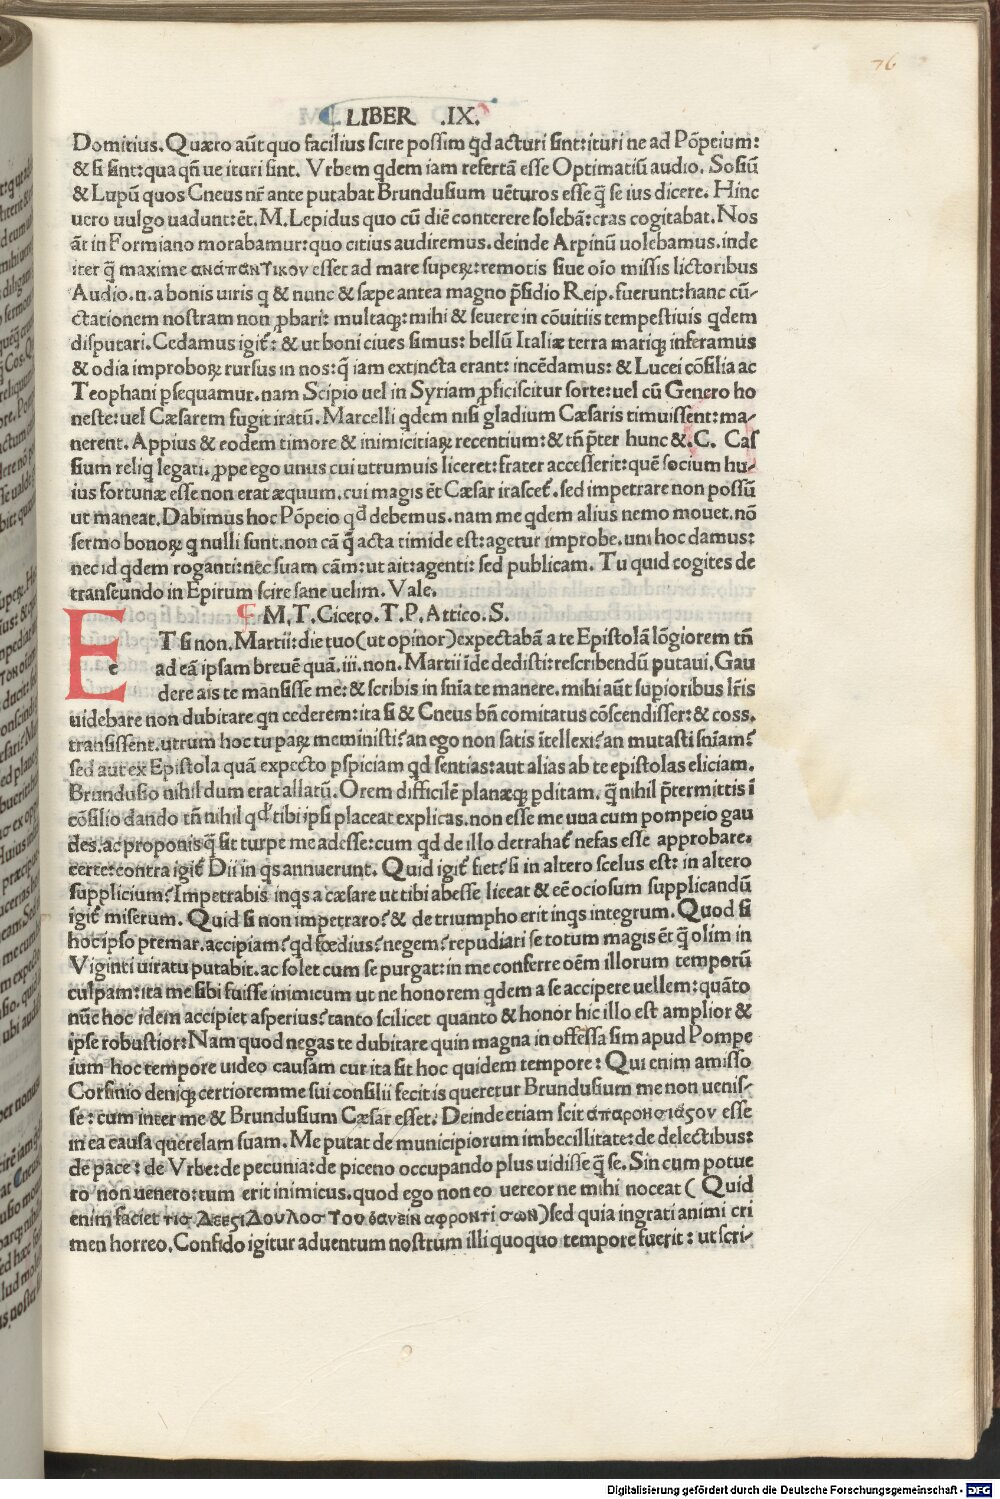 76
LIBER .IX.
Domitius. Quæro aũt quo facilius scire possim qd acturi sint: ituri ne ad Põpeium:
& si sint: qua qñ ue ituri sint. Vrbem qdem iam refertã esse Optimatiũ audio. Sosiũ
& Lupũ quos Cneus nr̃ ante putabat Brundusium uẽturos esse q̃ se ius dicere. Hinc
uero uulgo uadunt: ẽt. M. Lepidus quo cũ diẽ conterere solebã: cras cogitabat. Nos
ãt in Formiano morabamur: quo citius audiremus. deinde Arpinũ uolebamus. inde
iter q̃ maxime αναπαντικον esset ad mare supeꝝ: remotis siue oĩo missis lictoribus
Audio. n. a bonis uiris q & nunc & sæpe antea magno p̃sidio Reip. fuerunt: hanc cũ-
ctationem nostram non ꝓbari: multaqꝫ: mihi & seuere in cõuitiis tempestiuis qdem
disputari. Cedamus igiť: & ut boni ciues simus: bellũ Italiæ terra mariqꝫ inferamus
& odia improboꝝ rursus in nos: q̃ iam extincta erant: incẽdamus: & Lucei cõsilia ac
Teophani ꝑsequamur. nam Scipio uel in Syriam ꝓficiscitur sorte: uel cũ Genero ho
neste: uel Cæsarem fugit iratũ. Marcelli qdem nisi gladium Cæsaris timuissent: ma-
nerent. Appius & eodem timore & inimicitiaꝝ recentium: & tñ p̃ter hunc &. C. Cas
sium reliq legati. ꝓpe ego unus cui utrumuis liceret: frater accesserit: quẽ socium hu-
ius fortunæ esse non erat æquum. cui magis ẽt Cæsar irasceť. sed impetrare non possũ
ut maneat. Dabimus hoc Põpeio qd debemus. nam me qdem alius nemo mouet. nõ
sermo bonoꝝ q nulli sunt. non cã q̃ acta timide est: agetur improbe. uni hoc damus:
nec id qdem roganti: nec suam cãm: ut ait: agenti: sed publicam. Tu quid cogites de
transeundo in Epirum scire sane uelim. Vale.
M. T. Cicero. T. P. Attico. S.
E e T si non. Martii: die tuo (ut opinor) expectabã a te Epistolã lõgiorem tñ
ad eã ipsam breuẽ quã. iii. non. Martii ĩde dedisti: rescribendũ putaui. Gau
dere ais te mansisse me: & scribis in sñia te manere. mihi aũt suꝑioribus lr̃is
uidebare non dubitare qn cederem: ita si & Cneus bñ comitatus cõscendisset: & coss.
transissent. utrum hoc tu paꝝ meministi? an ego non satis ĩtellexi? an mutasti sñiam?
sed aut ex Epistola quã expecto ꝑspiciam qd sentias: aut alias ab te epistolas eliciam.
Brundusio nihil dum erat allatũ. O rem difficilẽ planæqꝫ ꝑditam. q̃ nihil p̃termittis ĩ
cõsilio dando tñ nihil qd tibi ipsi placeat explicas. non esse me una cum pompeio gau
des. ac proponis q̃ sit turpe me adesse: cum qd de illo detrahať nefas esse approbare.
certe: contra igiť Dii in qs annuerunt. Quid igiť fiet? si in altero scelus est: in altero
supplicium? Impetrabis inqs a cæsare ut tibi abesse liceat & eẽ ociosum supplicandũ
igiť miserum. Quid si non impetraro? & de triumpho erit inqs integrum. Quod si
hoc ipso premar. accipiam? qd fœdius? negem? repudiari se totum magis ẽt q̃ olim in
Viginti uiratu putabit. ac solet cum se purgat: in me conferre oẽm illorum temporũ
culpam: ita me sibi fuisse inimicum ut ne honorem qdem a se accipere uellem: quãto
nũc hoc idem accipiet asperius? tanto scilicet quanto & honor hic illo est amplior &
ipse robustior: Nam quod negas te dubitare quin magna in offessa sim apud Pompe
ium hoc tempore uideo causam cur ita sit hoc quidem tempore: Qui enim amisso
Corfinio deniqꝫ certiorem me sui consilii fecit is queretur Brundusium me non uenis-
se: cum inter me & Brundusium Cæsar esset. Deinde etiam scit απαρονσιαςον esse
in ea causa querelam suam. Me putat de municipiorum imbecillitate: de delectibus:
de pace: de Vrbe: de pecunia: de piceno occupando plus uidisse q̃ se. Sin cum potue
ro non uenero: tum erit inimicus. quod ego non eo uereor ne mihi noceat ( Quid
enim faciet τισ Δεεςι Δουλοσ Του δανειν αφροντι σων) sed quia ingrati animi cri
men horreo. Confido igitur aduentum nostrum illi quoquo tempore fuerit: ut scri-
Digitalisierung gefördert durch die Deutsche Forschungsgemeinschaft - DFG